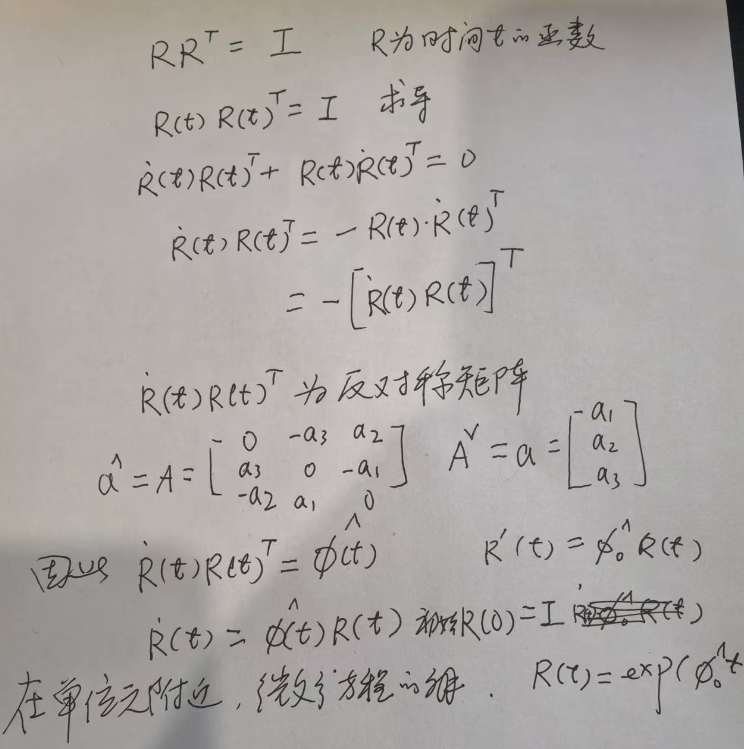 RRᵀ = I R为时间t的函数
R(t) R(t)ᵀ = I 求导
Ṙ(t)R(t)ᵀ + R(t)Ṙ(t)ᵀ = 0
Ṙ(t)R(t)ᵀ = - R(t)·Ṙ(t)ᵀ
= -[Ṙ(t) R(t)]ᵀ
Ṙ(t)R(t)ᵀ 为反对称矩阵
a^ = A = [0 -a₃ a₂ a₃ 0 -a₁ -a₂ a₁ 0] Aˇ = a = [a₁ a₂ a₃]
因此 Ṙ(t)R(t)ᵀ = ϕ(t)^ R'(t) = ϕ₀^ R(t)
Ṙ(t) = ϕ(t)^ R(t) 初始R(0) = I
在单位元附近,微分方程的解. R(t) = exp(ϕ₀^t